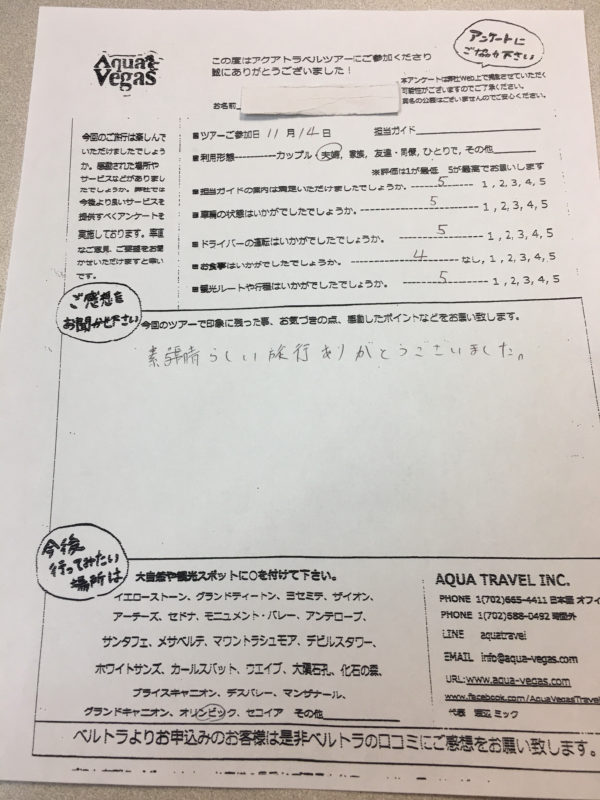 Aqua
Vegas
この度はアクアトラベルツアーにご参加くださり
誠にありがとうございました！
アンケートに
ご協力下さい
本アンケートは弊社Web上で掲載させていただく
可能性がございますのでご了承ください。
実名の公表はございませんのでご安心ください。
お名前
今回のご旅行は楽しんで
いただけましたでしょう
か。感動された場所や
サービスなどがありまし
たでしょうか。弊社では
今後より良いサービスを
提供すべくアンケートを
実施しております。率直
なご意見、ご要望をお聞
かせいただけますと幸い
です。
■ツアーご参加日 11月14日 担当ガイド
■利用形態----------カップル 夫婦, 家族, 友達・同僚, ひとりで, その他
※評価は1が最低 5が最高でお願いします
■担当ガイドの案内は満足いただけましたでしょうか。 5 1, 2, 3, 4, 5
■車輌の状態はいかがでしたでしょうか。 5 1, 2, 3, 4, 5
■ドライバーの運転はいかがでしたでしょうか。 5 1, 2, 3, 4, 5
■お食事はいかがでしたでしょうか。 4 なし, 1, 2, 3, 4, 5
■観光ルートや行程はいかがでしたでしょうか。 5 1, 2, 3, 4, 5
ご感想を
お聞かせ下さい
今回のツアーで印象に残った事、お気づきの点、感動したポイントなどをお願い致します。
素晴らしい旅行ありがとうございました。
今後
行ってみたい
場所は
大自然や観光スポットに○を付けて下さい。
イエローストーン、グランドティートン、ヨセミテ、ザイオン、
アーチーズ、セドナ、モニュメント・バレー、アンテロープ、
サンタフェ、メサベルテ、マウントラシュモア、デビルスタワー、
ホワイトサンズ、カールスバット、ウエイブ、大隕石孔、化石の森、
ブライスキャニオン、デスバレー、マンザナール、
グランドキャニオン、オリンピック、セコイア その他
AQUA TRAVEL INC.
PHONE 1(702)665-4411 日本語 オフィ
PHONE 1(702)688-0492 時間外
LINE aquatravel
EMAIL info@aqua-vegas.com
URL:www.aqua-vegas.com
www.facebook.com/AquaVegasTravel
代表 渡辺 ミック
ベルトラよりお申込みのお客様は是非ベルトラの口コミにご感想をお願い致します。